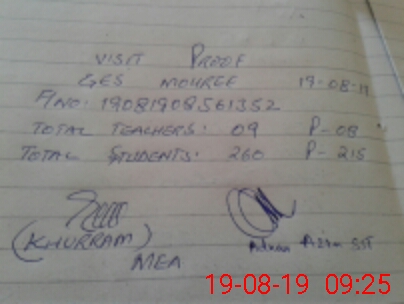 VISIT PROOF
GES MOHREE 19-08-19
P/NO: 19081908561352
TOTAL TEACHERS: 09 P-08
TOTAL STUDENTS: 260 P-215
(KHURRAM) Adnan Azam SST
MEA
19-08-19 09:25